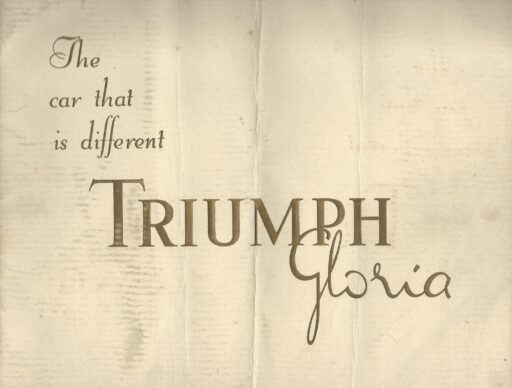 The
car that
is different
TRIUMPH
Gloria